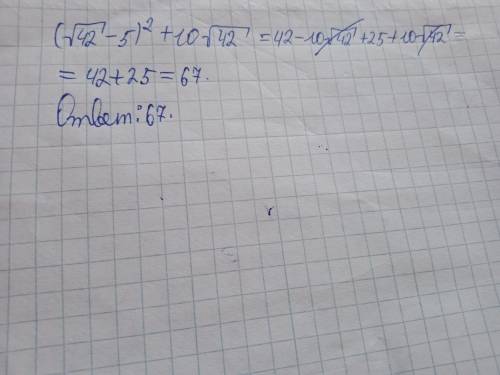 (√42 - 5)² + 10√42 = 42 - 10√42 + 25 + 10√42 =
= 42 + 25 = 67.
Ответ: 67.